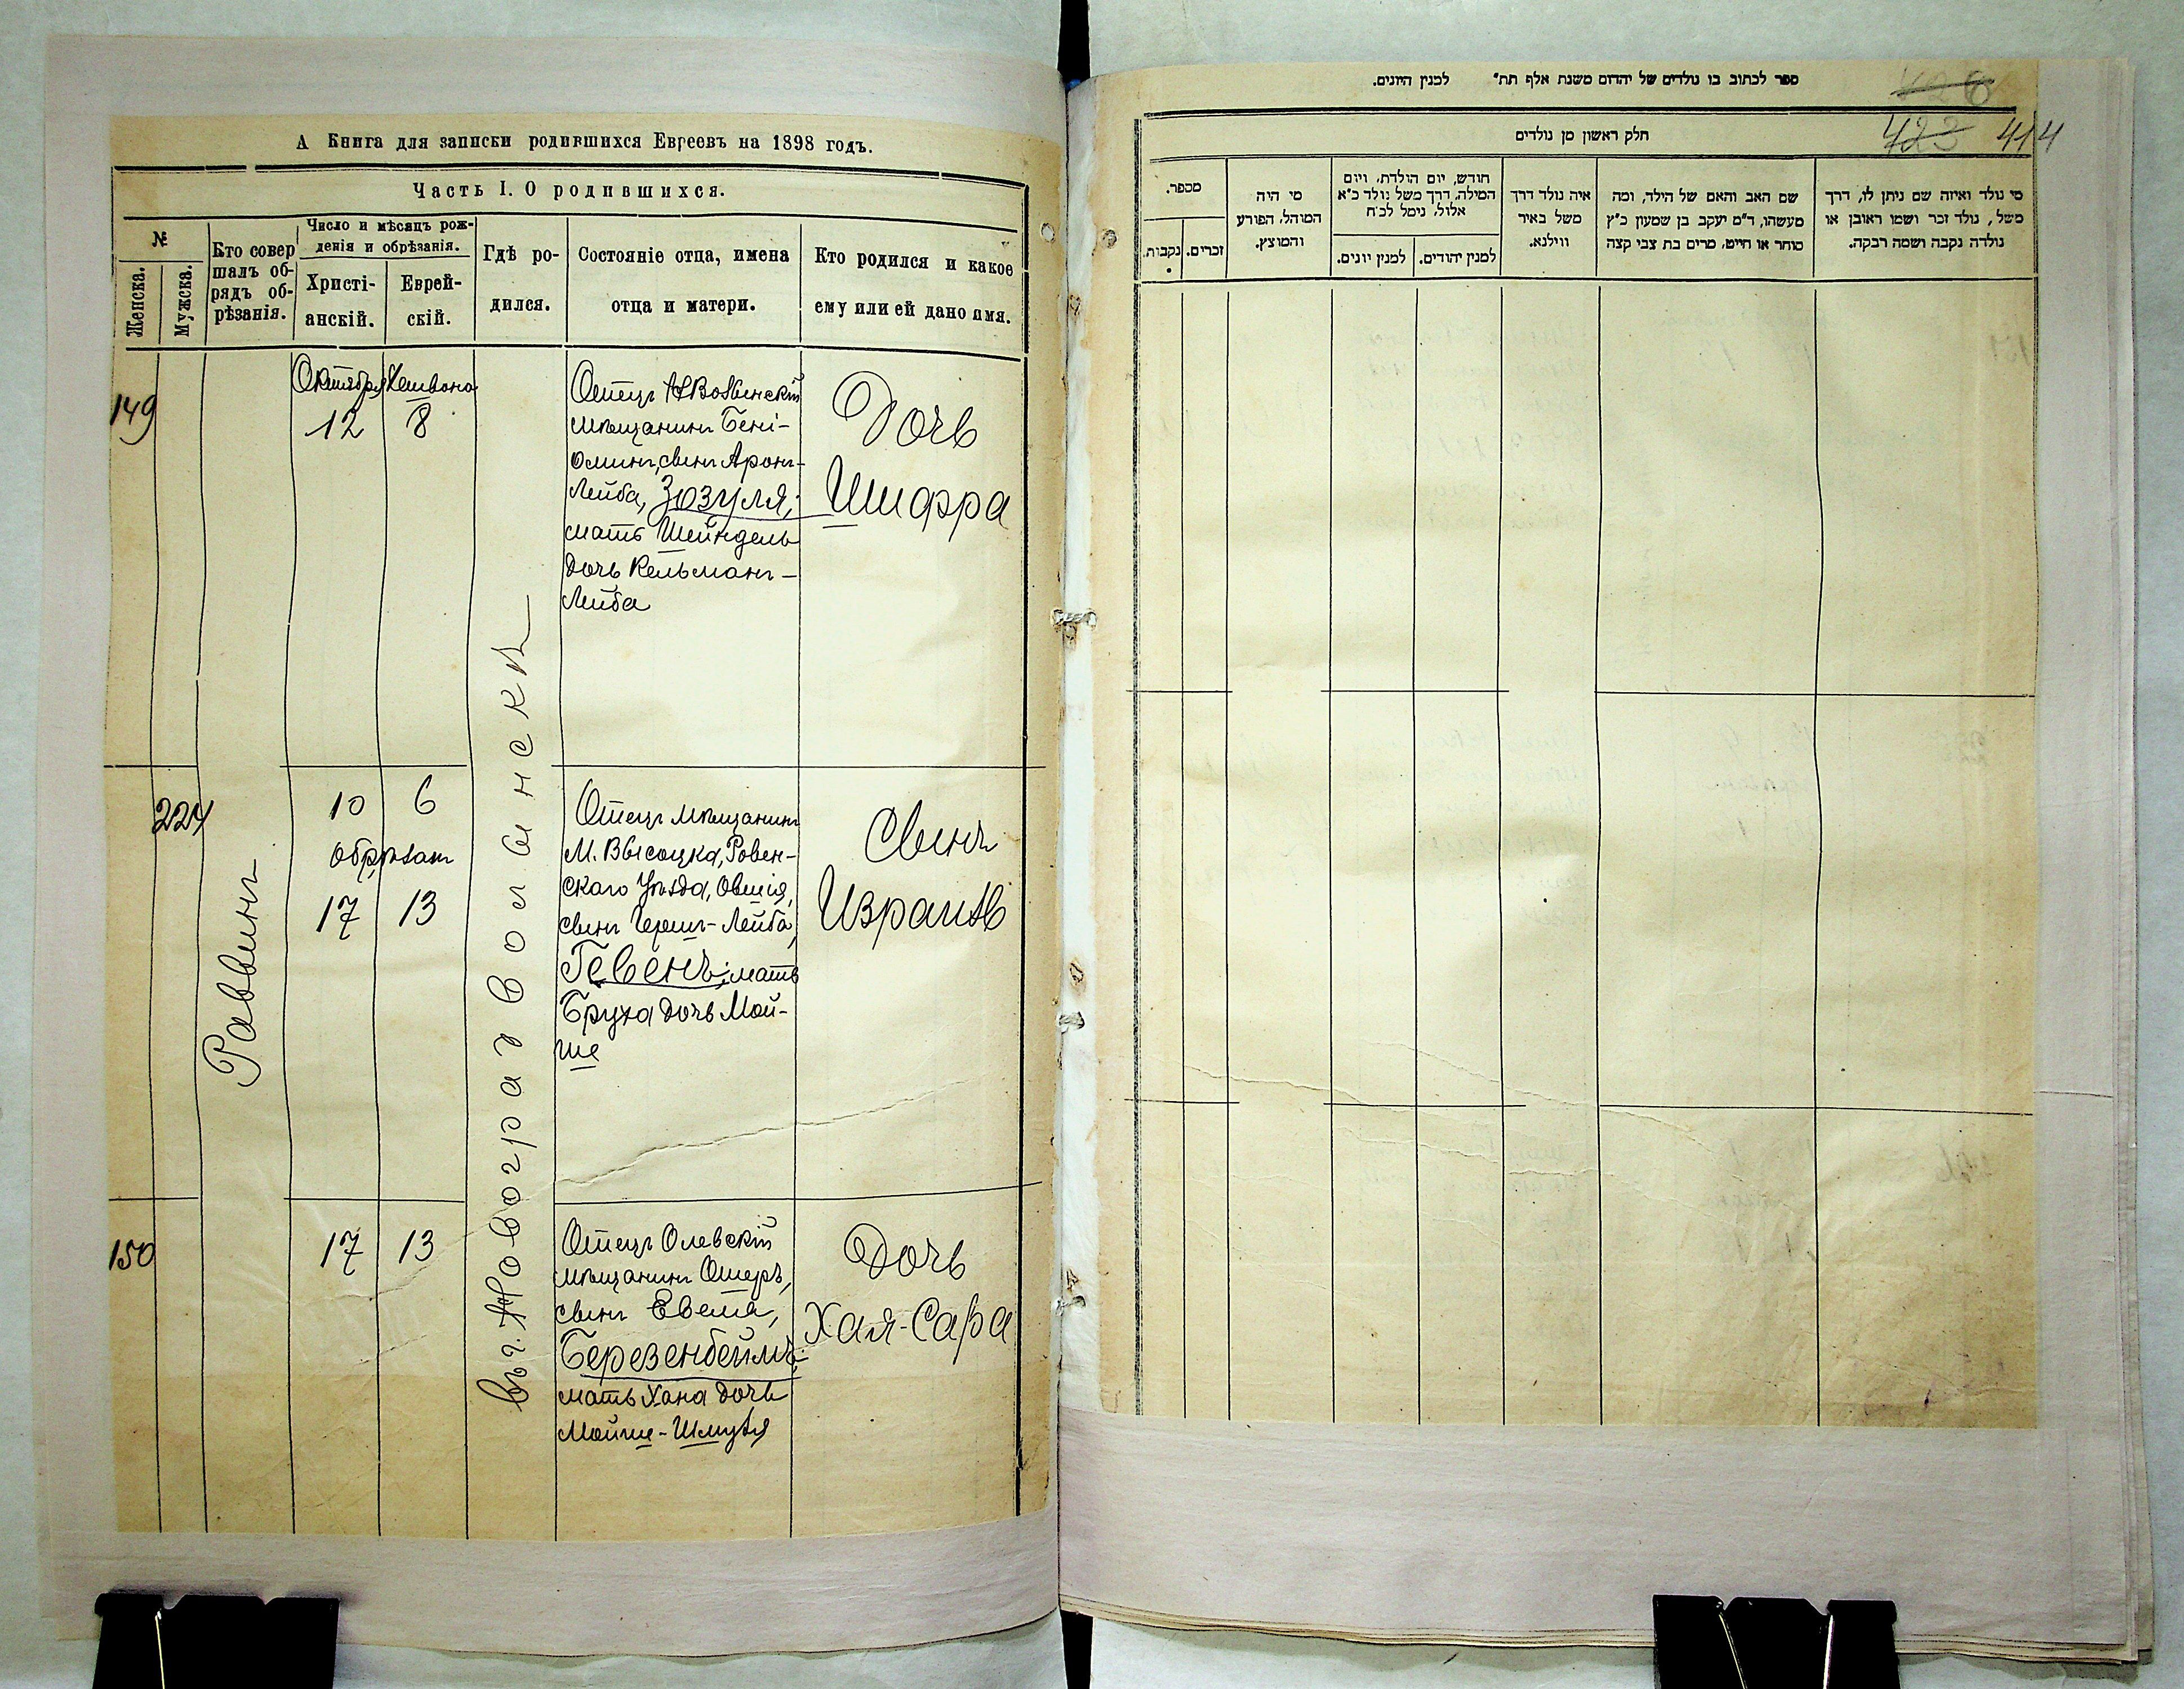 А Книга для записки родившихся Евреевъ на 1898 годъ.
Часть I. О родившихся.
№
Женска.
Мужска.
Кто совер
шалъ об-
рядъ об-
рѣзанія.
Число и мѣсяцъ рож-
денія и обрѣзанія.
Христі-
анскій.
Еврей-
скій.
Гдѣ ро-
дился.
Состояніе отца, имена
отца и матери.
Кто родился и какое
ему или ей дано имя.
149
Октября Хешвона
12 8
Отецъ
мѣщанинъ Бені-
оминъ, сынъ Аронъ-
Лейба, Зозуля;
мать Шейндель
дочь Кельманъ-
Лейба
Дочь
Шифра
224
Раввинъ
10 6
обрѣзанъ
17 13
въ г. Новоградволынскѣ
Отецъ мѣщанинъ
М. Высоцка, Ровен-
скаго Уѣзда, Овшія,
сынъ Герш-Лейба,
Гевенъ; мать
Бруха дочь Мой-
ше
Сынъ
Израиль
150
17 13
Отецъ Олевскій
мѣщанинъ Ошеръ,
сынъ Евеля,
Березенбеймъ;
мать Хана дочь
Мойше-Шмуля
Дочь
Хая-Сара
ספר לכתוב בו נולדים של יהדום משנת אלף תת״ למנין היונים.
423 414
חלק ראשון מן נולדים
מי נולד ואיזה שם ניתן לו, דרך
משל, נולד זכר ושמו ראובן או
נולדה נקבה ושמה רבקה.
שם האב והאם של הילד, ומה
מעשהו, ד״מ יעקב בן שמעון כ״ץ
סוחר או חייט, מרים בת צבי קצה
איה נולד דרך
משל באיר
ווילנא.
חודש, יום הולדת, ויום
המילה, דרך משל נולד כ״א
אלול, נימל לכ״ח
למנין יהודים.
למנין יונים.
מי היה
המוהל, הפורע
והמוצץ.
מספר.
זכרים.
נקבות.